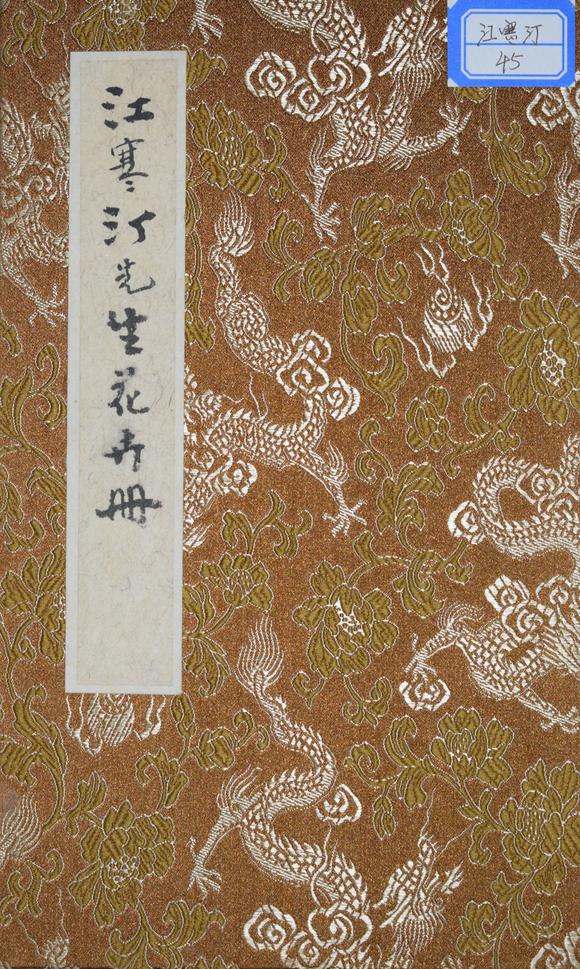 江寒汀先生花卉册
江寒汀
45